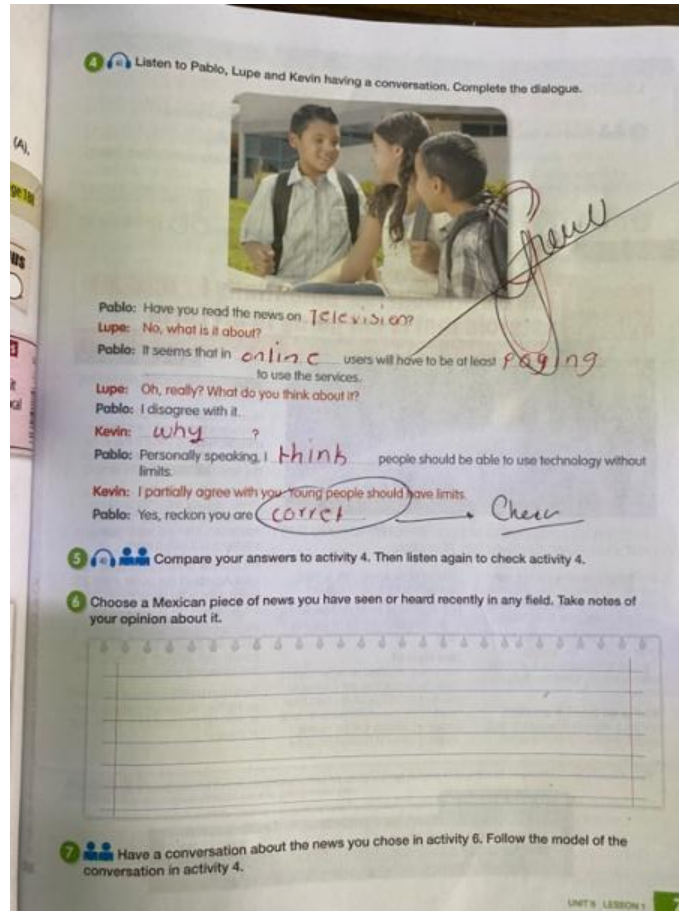 (A),
4 Listen to Pablo, Lupe and Kevin having a conversation. Complete the dialogue.
Pablo: Have you read the news on Television?
Lupe: No, what is it about?
Pablo: It seems that in online users will have to be at least paging
to use the services.
Lupe: Oh, really? What do you think about it?
Pablo: I disagree with it.
Kevin: why ?
Pablo: Personally speaking, I think people should be able to use technology without
limits.
Kevin: I partially agree with you. Young people should have limits.
Pablo: Yes, reckon you are corret
5 Compare your answers to activity 4. Then listen again to check activity 4.
6 Choose a Mexican piece of news you have seen or heard recently in any field. Take notes of
your opinion about it.
7 Have a conversation about the news you chose in activity 6. Follow the model of the
conversation in activity 4.
UNIT 8 LESSON 1